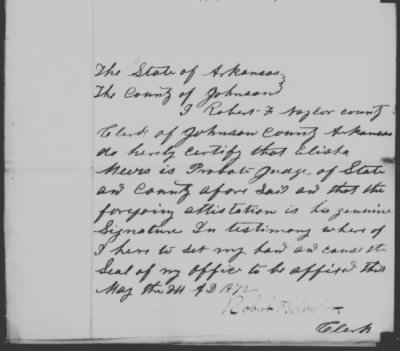 The State of Arkansas }
The County of Johnson }
I Robert F Naylor county
Clerk of Johnson County Arkansas
do hereby certify that Elisha
Meers is Probate Judge of State
an County afore Said an that the
foregoing attistation is his genuine
Signature In testimony where of
I here to set my han an cause the
Seal of my office to be affised this
May the 24 A D 1872
Robert F. Naylor
Clerk